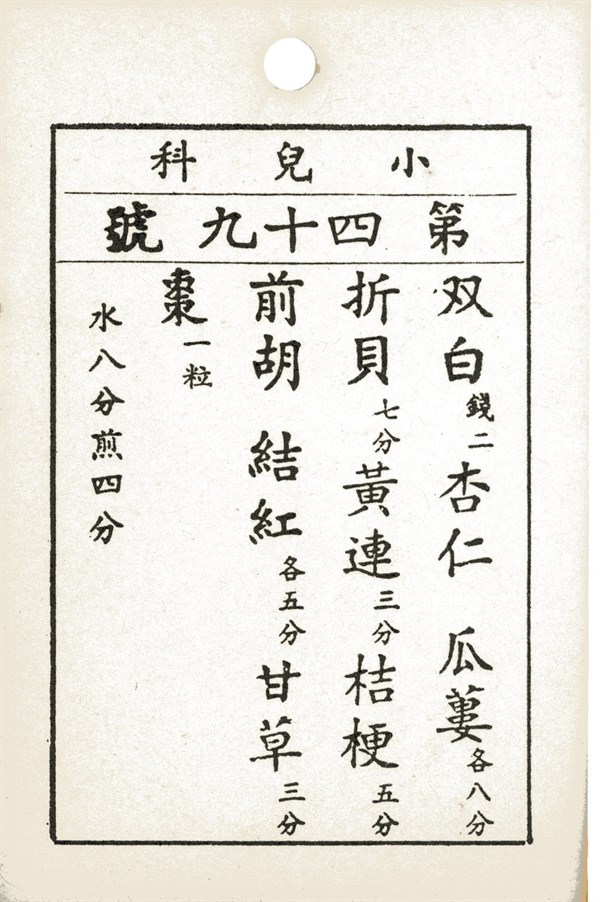 小兒科
第四十九號
双白錢二杏仁 瓜蔞各八分
折貝七分黃連三分桔梗五分
前胡 結紅各五分甘草三分
棗一粒
水八分煎四分